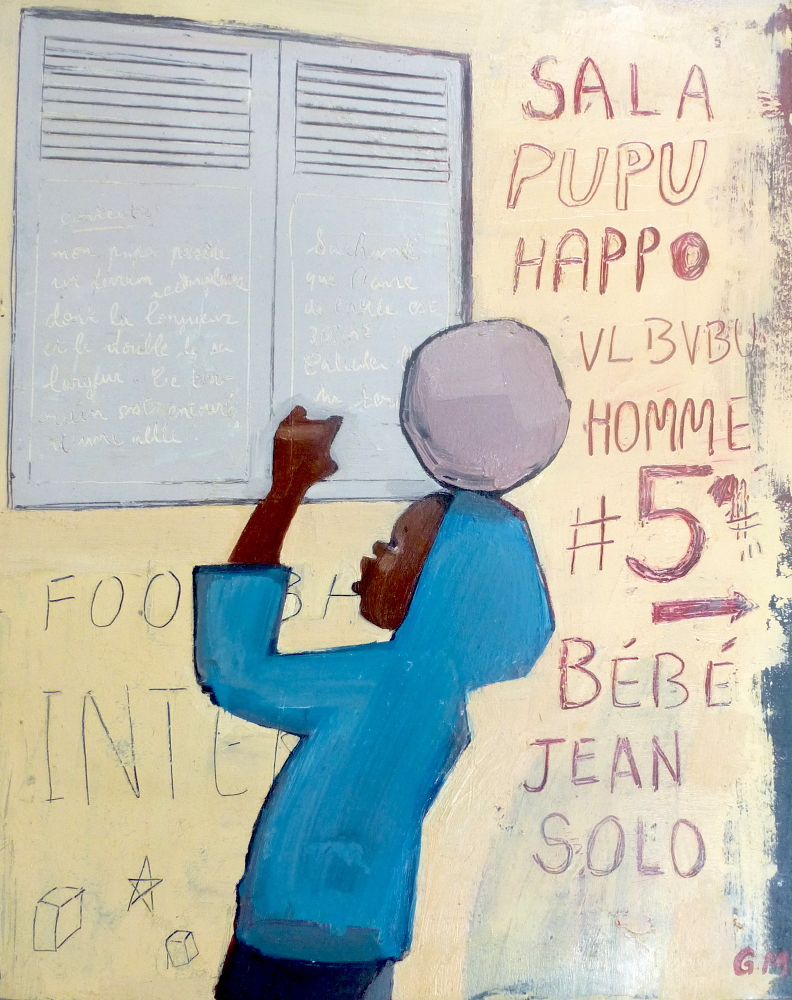 mon papa possède
un terrain rectangulaire
dont la longueur
est le double de sa
largeur. Ce ter-
rain est entouré
d'une allée.
Sachant
que l'aire
de l'allée est
Calculer l
du ter
SALA
PUPU
HAPPO
VLBVBU
HOMME
#5
BÉBÉ
JEAN
SOLO
FOO BA
INTER
G.M